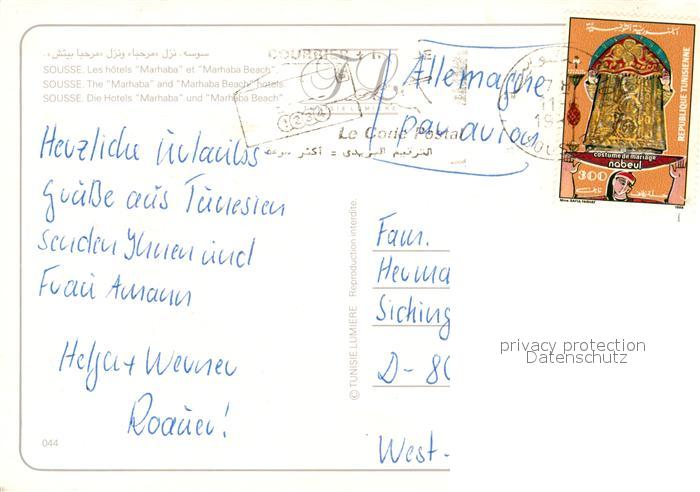 سوسه. نزل «مرحبا» ونزل «مرحبا بيتش».
SOUSSE. Les hôtels "Marhaba" et "Marhaba Beach".
SOUSSE. The "Marhaba" and "Marhaba Beach" hotels.
SOUSSE. Die Hotels "Marhaba" und "Marhaba Beach"
TUNISIE LUMIERE
1234
Le Code Postal
الترقيم البريدي = أكثر سرعة
Allemagne
par avion
REPUBLIQUE TUNISIENNE
costume de mariage
nabeul
300
1988
Herzliche Urlaubs
Grüße aus Tunesien
senden Ihnen und
Frau Amann
Helga + Werner
044
© TUNISIE.LUMIERE Reproduction interdite.
Fam.
Herma
Siching
D-80
West-
privacy protection
Datenschutz